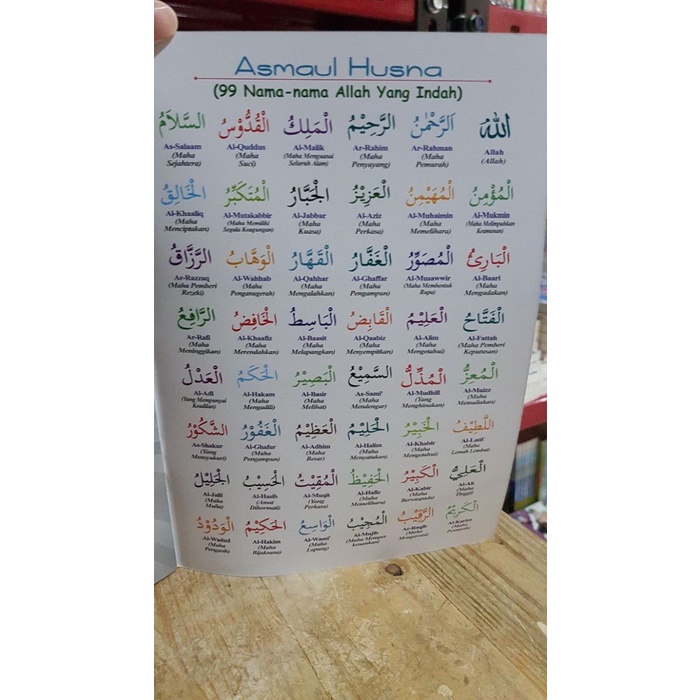 Asmaul Husna
(99 Nama-nama Allah Yang Indah)
الله
Allah
(Allah)
اَلرَّحْمٰنُ
Ar-Rahman
(Maha
Pemurah)
الرَّحِيْمُ
Ar-Rahim
(Maha
Penyayang)
الْمَلِكُ
Al-Malik
(Maha Menguasai
Seluruh Alam)
الْقُدُّوْسُ
Al-Quddus
(Maha
Suci)
السَّلاَمُ
As-Salaam
(Maha
Sejahtera)
الْمُؤْمِنُ
Al-Mukmin
(Maha Melimpahkan
Keamanan)
الْمُهَيْمِنُ
Al-Muhaimin
(Maha
Memelihara)
الْعَزِيْزُ
Al-Aziz
(Maha
Perkasa)
الْجَبَّارُ
Al-Jabbar
(Maha
Kuasa)
الْمُتَكَبِّرُ
Al-Mutakabbir
(Maha Memiliki
Segala Keagungan)
الْخَالِقُ
Al-Khaaliq
(Maha
Menciptakan)
الْبَارِئُ
Al-Baari
(Maha
Mengadakan)
الْمُصَوِّرُ
Al-Musawwir
(Maha Membentuk
Rupa)
الْغَفَّارُ
Al-Ghaffar
(Maha
Pengampun)
الْقَهَّارُ
Al-Qahhar
(Maha
Mengalahkan)
الْوَهَّابُ
Al-Wahhab
(Maha
Penganugerah)
الرَّزَّاقُ
Ar-Razzaq
(Maha Pemberi
Rezeki)
الْفَتَّاحُ
Al-Fattah
(Maha Pemberi
Keputusan)
الْعَلِيْمُ
Al-Alim
(Maha
Mengetahui)
الْقَابِضُ
Al-Qaabiz
(Maha
Menyempitkan)
الْبَاسِطُ
Al-Baasit
(Maha
Melapangkan)
الْخَافِضُ
Al-Khaafiz
(Maha
Merendahkan)
الرَّافِعُ
Ar-Rafi
(Maha
Meninggikan)
الْمُعِزُّ
Al-Muizz
(Maha
Memuliakan)
الْمُذِلُّ
Al-Mudhill
(Yang
Menghinakan)
السَّمِيْعُ
As-Sami'
(Maha
Mendengar)
الْبَصِيْرُ
Al-Basir
(Maha
Melihat)
الْحَكَمُ
Al-Hakam
(Maha
Mengadili)
الْعَدْلُ
Al-Adl
(Yang Mempunyai
Keadilan)
اللَّطِيْفُ
Al-Latif
(Maha
Lemah Lembut)
الْخَبِيْرُ
Al-Khabir
(Maha
Mengetahui)
الْحَلِيْمُ
Al-Halim
(Maha
Menyantun)
الْعَظِيْمُ
Al-Adhim
(Maha
Besar)
الْغَفُوْرُ
Al-Ghafur
(Maha
Pengampun)
الشَّكُوْرُ
As-Shakur
(Yang
Mensyukuri)
الْعَلِيُّ
Al-Ali
(Maha
Tinggi)
الْكَبِيْرُ
Al-Kabir
(Maha
الْحَفِيْظُ
Al-Hafiz
(Maha
Memelihara)
الْمُقِيْتُ
Al-Muqit
(Yang
Perkasa)
الْحَسِيْبُ
Al-Hasib
(Amat
Dihormati)
الْجَلِيْلُ
Al-Jalil
(Maha
Mulia)
الْكَرِيْمُ
Al-Karim
(Maha
Pemurah)
الرَّقِيْبُ
Ar-Raqib
(Maha
الْمُجِيْبُ
Al-Mujib
(Maha Memper
kenankan)
الْوَاسِعُ
Al-Wasi'
(Maha
Lapang)
الْحَكِيْمُ
Al-Hakim
(Maha
Bijaksana)
الْوَدُوْدُ
Al-Wadud
(Maha
Pengasih)